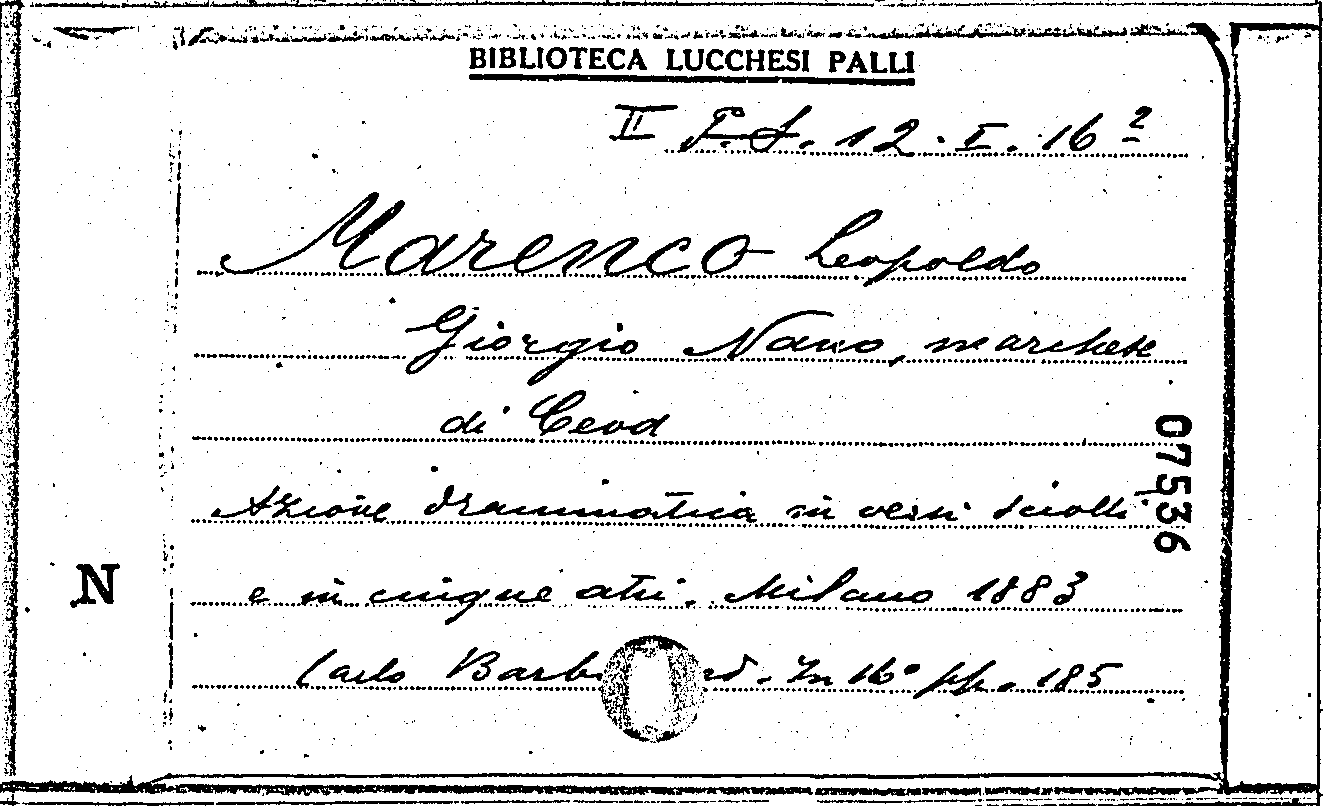 BIBLIOTECA LUCCHESI PALLI
II P.S. 12. I. 16²
Marenco Leopoldo
Giorgio Nano, marchese
di Ceva
Azione drammatica in versi sciolti
e in cinque atti. Milano 1883
Carlo Barb ed. In 16° pp. 185
07536
N